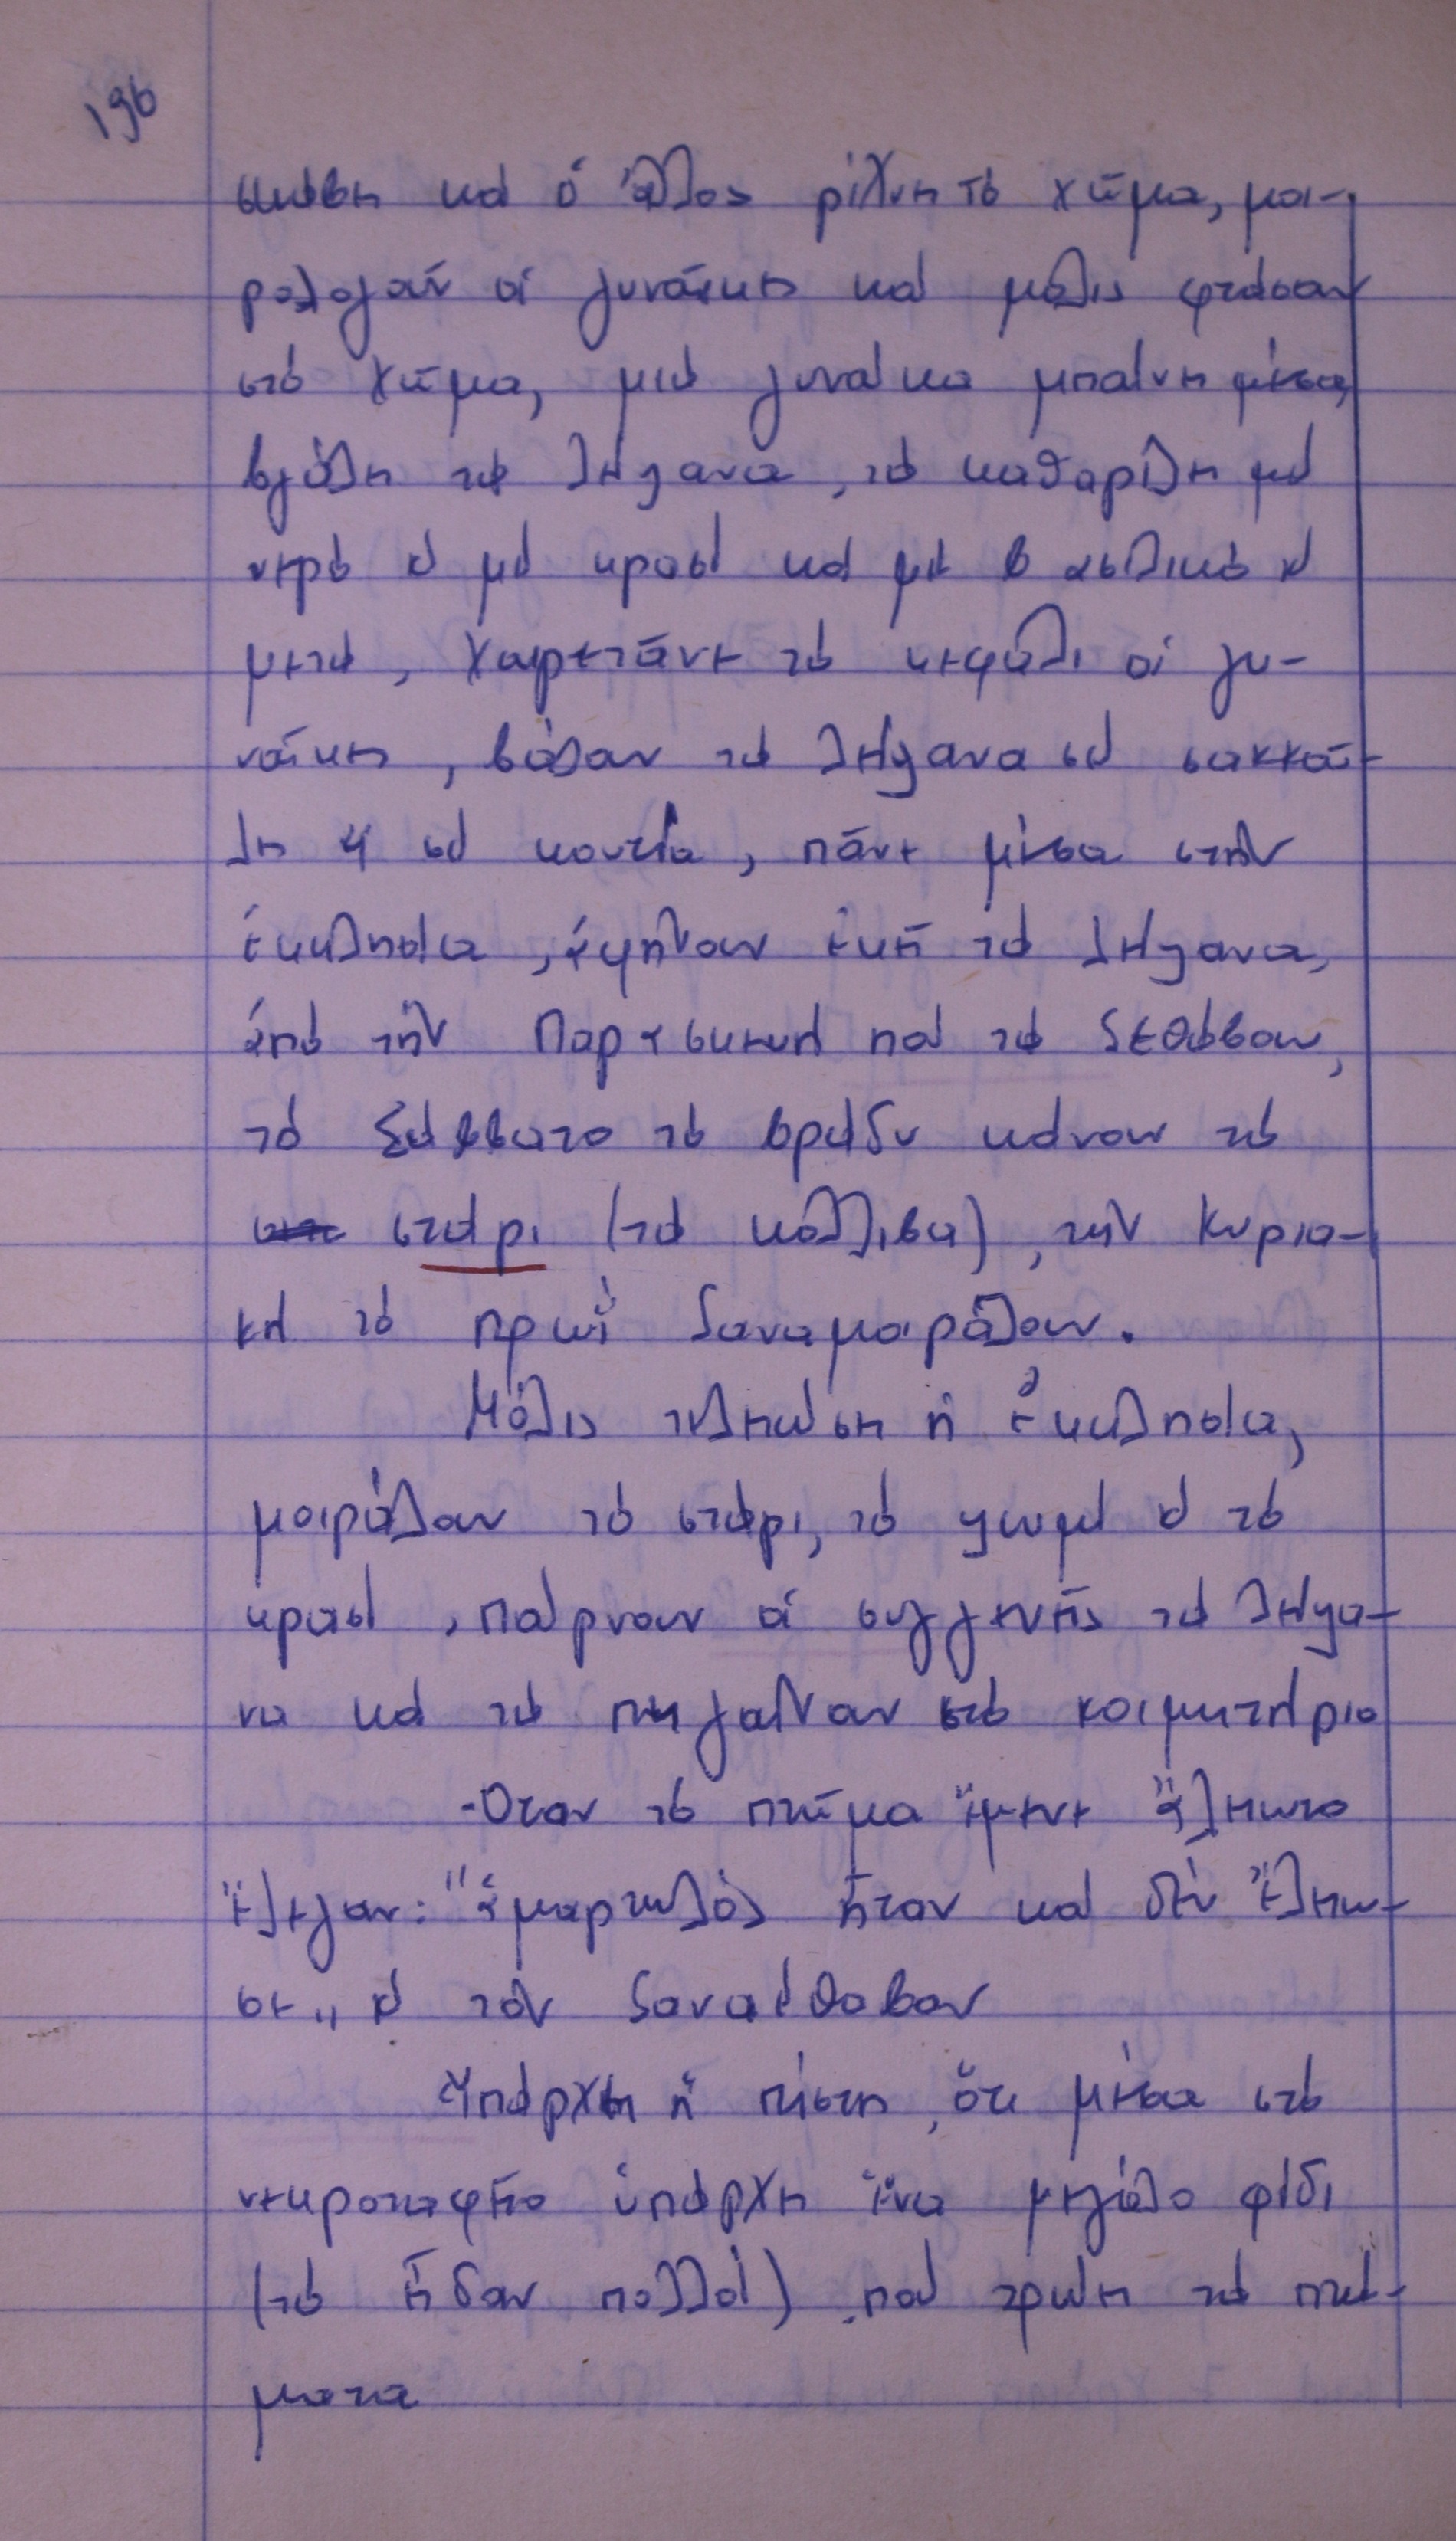 196
σκάβει καί ὁ ἄλλος ρίχνει τό χῶμα, μοι-
ρολογᾶν οἱ γυναῖκες καί μόλις φτάσουν
στό χῶμα, μιά γυναίκα μπαίνει μέσα,
βγάζει τά λείψανα, τά καθαρίζει μέ
νερό κ μέ κρασί καί μέ βασιλικό κ
μετά, χαιρετᾶνε τό κεφάλι οἱ γυ-
ναῖκες, βάζουν τά λείψανα σέ σακκού-
λες ἤ σέ κουτιά, πᾶνε μέσα στήν
ἐκκλησία, ἀφήνουν ἐκεῖ τά λείψανα,
ἀπό τήν Παρασκευή πού τά ξεθάβουν,
τό Σάββατο τό βράδυ κάνουν τό
στάρι (τά κόλλιβα), τήν Κυρια-
κή τό πρωΐ ξαναμοιράζουν.
Μόλις τελειώσει ἡ ἐκκλησία,
μοιράζουν τό στάρι, τό ψωμί κ τό
κρασί, παίρνουν οἱ συγγενεῖς τά λείψα-
να καί τά πηγαίνουν στό κοιμητήριο
-Ὅταν τό πτῶμα ἔμενε ἄλειωτο
ἔλεγαν: "ἁμαρτωλός ἦταν καί δέν ἔλειω-
σε" κ τόν ξαναέθαβαν
Ὑπάρχει ἡ πίστη, ὅτι μέσα στό
νεκροταφεῖο ὑπάρχει ἕνα μεγάλο φίδι
(τό εἶδαν πολλοί) πού τρώει τά πτώ-
ματα